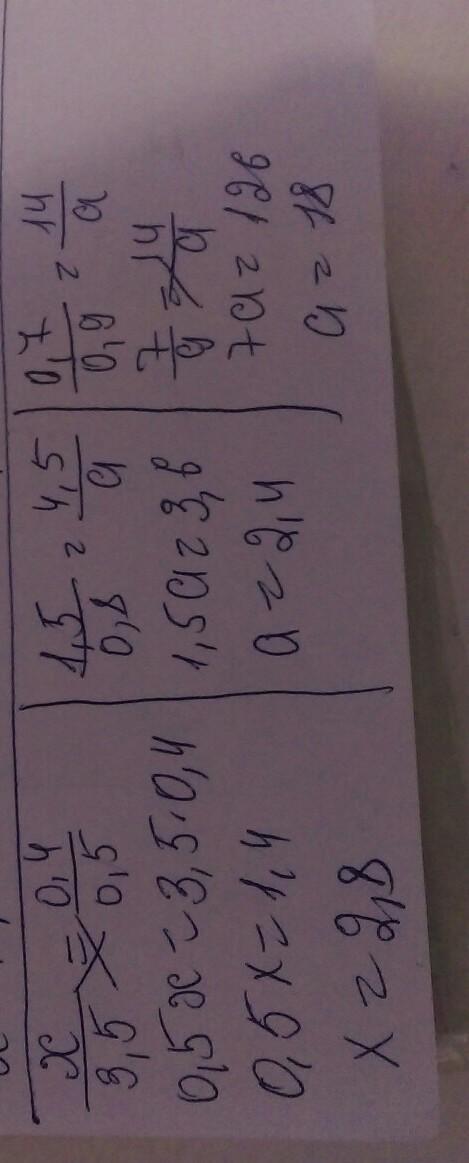 x/3,5 = 0,4/0,5
0,5x = 3,5·0,4
0,5x = 1,4
x = 2,8
1,5/0,8 = 4,5/a
1,5a = 3,6
a = 2,4
0,7/0,9 = 14/a
7/9 = 14/a
7a = 126
a = 18